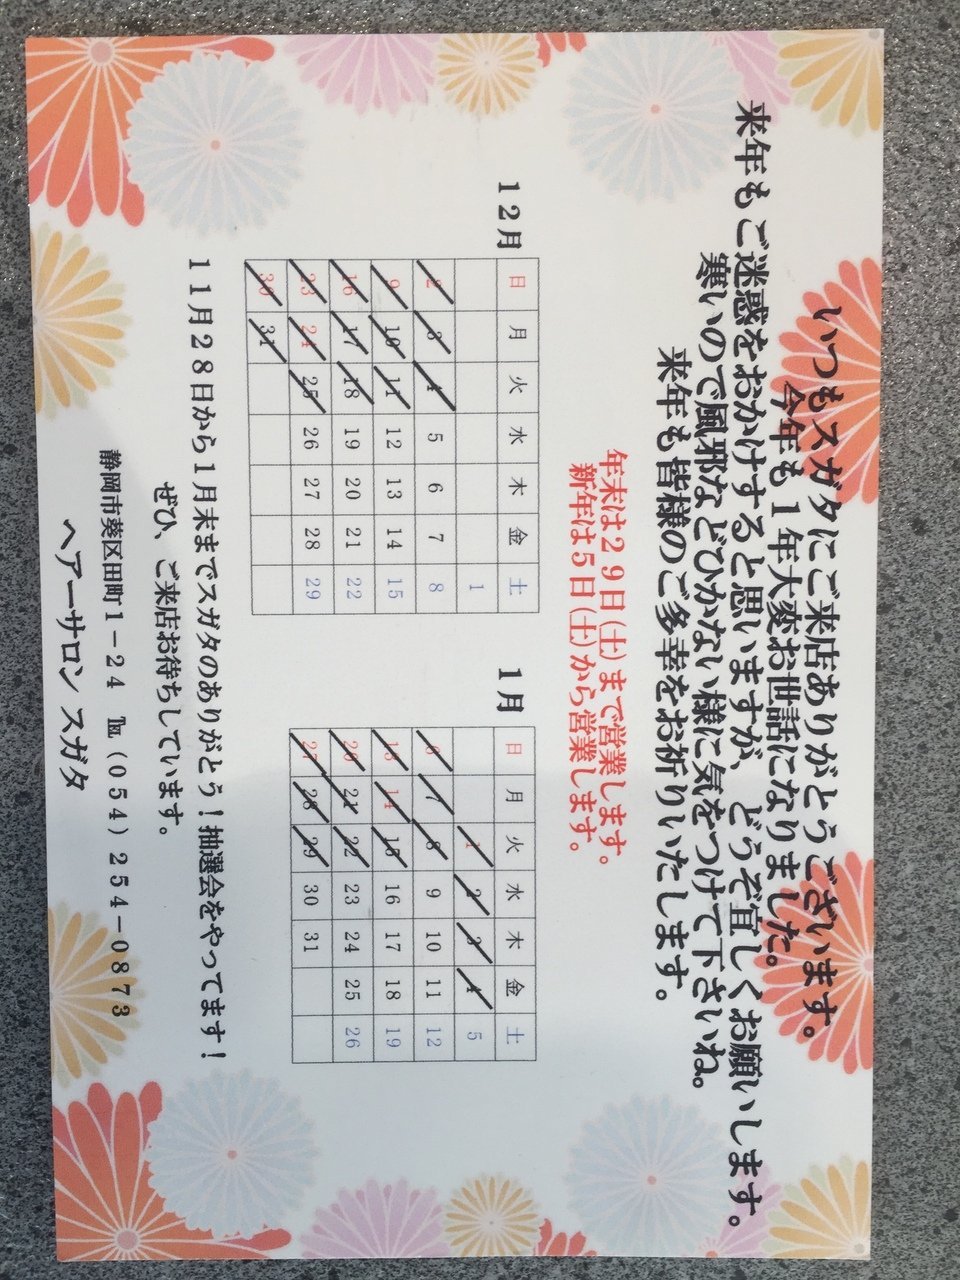 いつもスガタにご来店ありがとうございます。
今年も1年大変お世話になりました。
来年もご迷惑をおかけすると思いますが、どうぞ宜しくお願いします。
寒いので風邪などひかない様に気をつけて下さいね。
来年も皆様のご多幸をお祈りいたします。
年末は29日(土)まで営業します。
新年は5日(土)から営業します。
12月
日 月 火 水 木 金 土
1
2 3 4 5 6 7 8
9 10 11 12 13 14 15
16 17 18 19 20 21 22
23 24 25 26 27 28 29
30 31
1月
日 月 火 水 木 金 土
1 2 3 4 5
6 7 8 9 10 11 12
13 14 15 16 17 18 19
20 21 22 23 24 25 26
27 28 29 30 31
11月28日から1月末までスガタのありがとう!抽選会をやってます!
ぜひ、ご来店お待ちしています。
静岡市葵区田町1-24 ℡(054)254-0873
ヘアーサロン スガタ